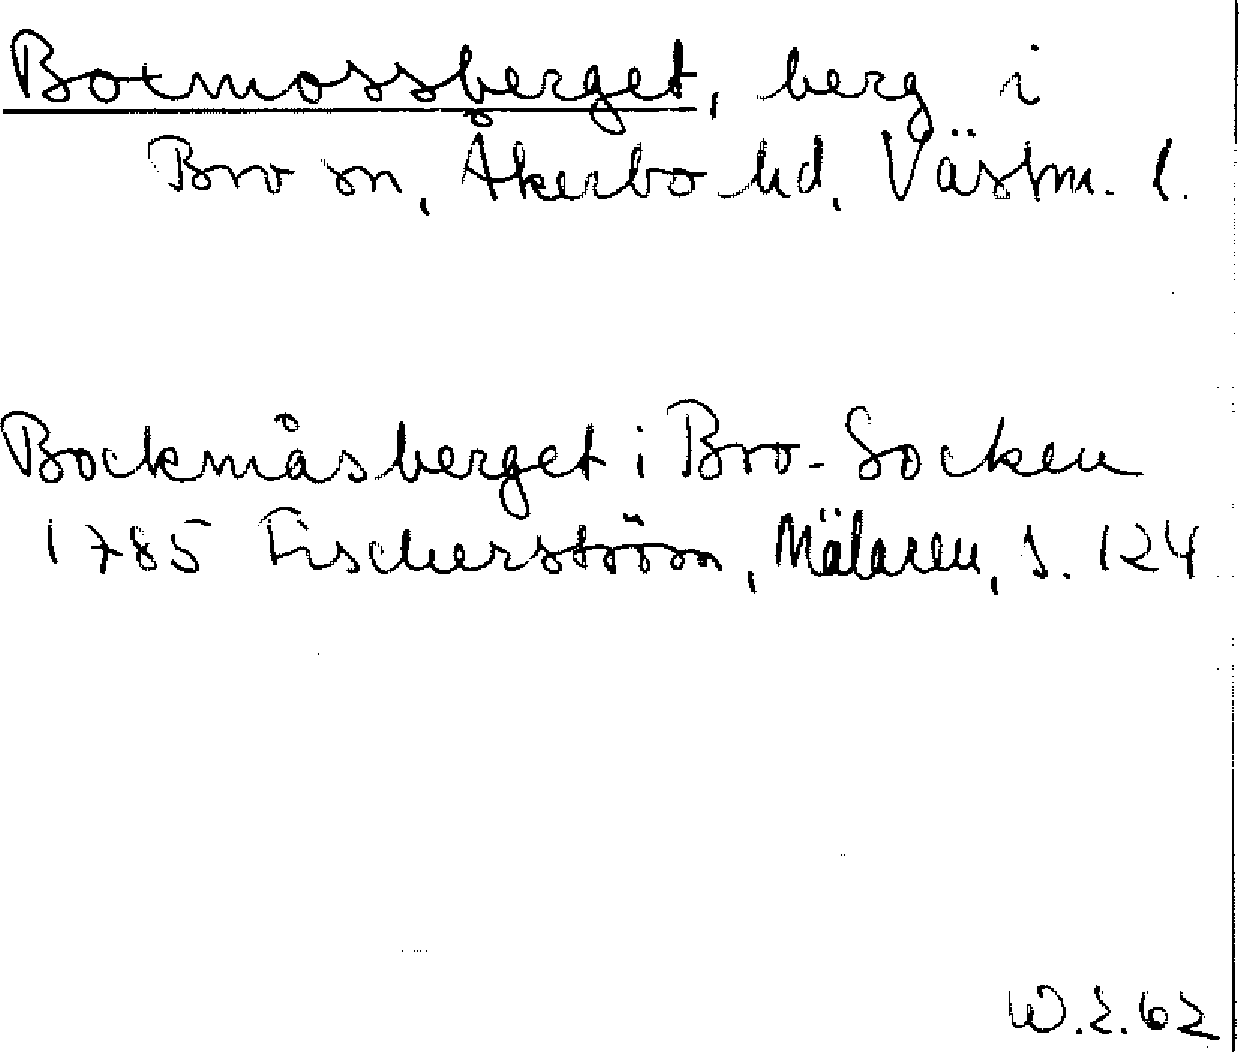 Botmossberget, berg i
Bro sn, Åkerbo hd, Västm. l.
Bockmåsberget i Bro-Socken
1785 Fischerström, Mälaren, s. 124
W.2.62